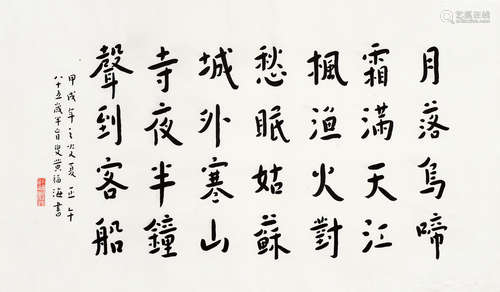 月落烏啼
霜滿天江
楓渔火對
愁眠姑蘇
城外寒山
寺夜半鐘
聲到客船
甲戌年之炎夏正午
八十五歲半盲叟黄福海書
艺狐在线